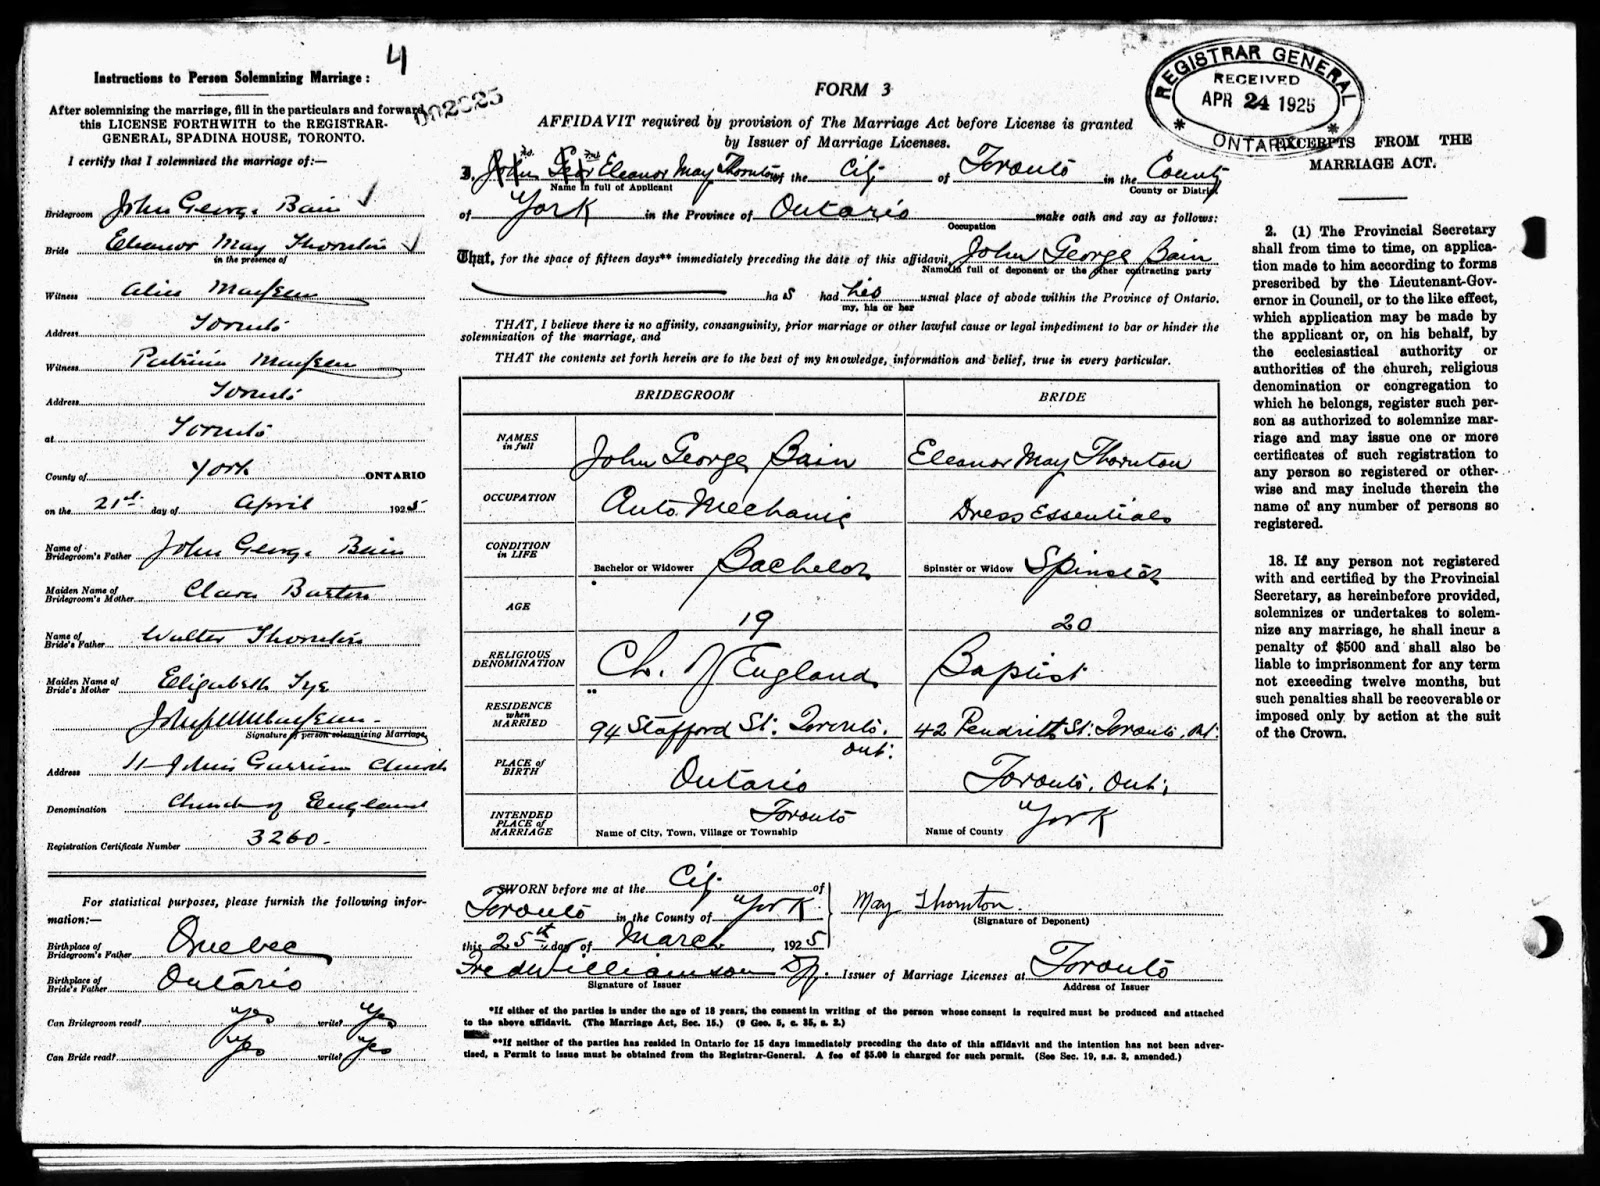 4
Instructions to Person Solemnizing Marriage:
After solemnizing the marriage, fill in the particulars and forward
this LICENSE FORTHWITH to the REGISTRAR-
GENERAL, SPADINA HOUSE, TORONTO.
I certify that I solemnised the marriage of:—
Bridegroom John George Bain
Bride Eleanor May Thornton
in the presence of
Witness
Address Toronto
Witness Patricia
Address Toronto
at Toronto
County of York ONTARIO
on the 21st day of April 1925
Name of Bridegroom's Father John George Bain
Maiden Name of Bridegroom's Mother Clara Burton
Name of Bride's Father Walter Thornton
Maiden Name of Bride's Mother Elizabeth Tye
Signature of person solemnizing Marriage
Address St Johns Garrison Church
Denomination Church of England
Registration Certificate Number 3260.
For statistical purposes, please furnish the following infor-
mation:—
Birthplace of Bridegroom's Father Quebec
Birthplace of Bride's Father Ontario
Can Bridegroom read? Yes write? Yes
Can Bride read? Yes write? Yes
FORM 3
AFFIDAVIT required by provision of The Marriage Act before License is granted
by Issuer of Marriage Licenses.
Eleanor May Thornton of the City of Toronto in the County
Name in full of Applicant County or District
of York in the Province of Ontario make oath and say as follows:
Occupation
That, for the space of fifteen days** immediately preceding the date of this affidavit, John George Bain
Name in full of deponent or the other contracting party
has had his usual place of abode within the Province of Ontario.
my, his or her
THAT, I believe there is no affinity, consanguinity, prior marriage or other lawful cause or legal impediment to bar or hinder the
solemnization of the marriage, and
THAT the contents set forth herein are to the best of my knowledge, information and belief, true in every particular.
BRIDEGROOM BRIDE
NAMES in full John George Bain Eleanor May Thornton
OCCUPATION Auto Mechanic Dress Essentials
CONDITION in LIFE Bachelor or Widower Bachelor Spinster or Widow Spinster
AGE 19 20
RELIGIOUS DENOMINATION Ch. of England Baptist
RESIDENCE when MARRIED 94 Stafford St. Toronto. Ont. 42 Pendrith St. Toronto, Ont.
PLACE of BIRTH Ontario Toronto, Ont.
INTENDED PLACE of MARRIAGE Name of City, Town, Village or Township Toronto Name of County York
SWORN before me at the City of
Toronto in the County of York
this 25th day of March, 1925
May Thornton.
(Signature of Deponent)
Fred Williamson
Signature of Issuer
Issuer of Marriage Licenses at Toronto
Address of Issuer
*If either of the parties is under the age of 18 years, the consent in writing of the person whose consent is required must be produced and attached
to the above affidavit. (The Marriage Act, Sec. 15.) (9 Geo. 5, c. 35, s. 2.)
**If neither of the parties has resided in Ontario for 15 days immediately preceding the date of this affidavit and the intention has not been adver-
tised, a Permit to issue must be obtained from the Registrar-General. A fee of $5.00 is charged for such permit. (See Sec. 19, s.s. 3, amended.)
REGISTRAR GENERAL
RECEIVED
APR 24 1925
ONTARIO
EXCERPTS FROM THE
MARRIAGE ACT.
2. (1) The Provincial Secretary
shall from time to time, on applica-
tion made to him according to forms
prescribed by the Lieutenant-Gov-
ernor in Council, or to the like effect,
which application may be made by
the applicant or, on his behalf, by
the ecclesiastical authority or
authorities of the church, religious
denomination or congregation to
which he belongs, register such per-
son as authorized to solemnize mar-
riage and may issue one or more
certificates of such registration to
any person so registered or other-
wise and may include therein the
name of any number of persons so
registered.
18. If any person not registered
with and certified by the Provincial
Secretary, as hereinbefore provided,
solemnizes or undertakes to solem-
nize any marriage, he shall incur a
penalty of $500 and shall also be
liable to imprisonment for any term
not exceeding twelve months, but
such penalties shall be recoverable or
imposed only by action at the suit
of the Crown.